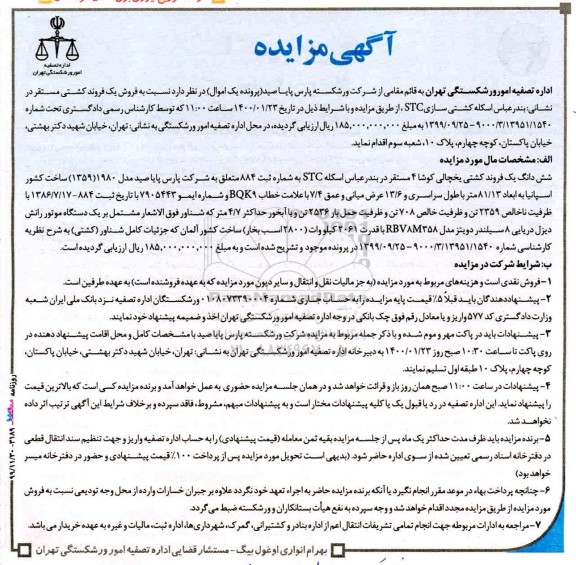 آگهی مزایده
اداره تصفیه
امور ورشکستگی تهران
اداره تصفیه امور ورشکستگی تهران به قائم مقامی از شرکت ورشکسته پارس پایا صید(پرونده یک اموال) در نظر دارد نسبت به فروش یک فروند کشتی مستقر در
نشانی: بندرعباس اسکله کشتی سازی STC ، از طریق مزایده و با شرایط ذیل در تاریخ ۱۴۰۰/۰۱/۲۳ ساعت ۱۱:۰۰ که توسط کارشناس رسمی دادگستری تحت شماره
۹۰۰۰/۳/۱۳۹۵۱/۱۵۴۰-۱۳۹۹/۰۹/۲۵ به مبلغ ۱۸۵,۰۰۰,۰۰۰,۰۰۰ ریال ارزیابی گردیده، در محل اداره تصفیه امور ورشکستگی به نشانی: تهران، خیابان شهید دکتر بهشتی،
خیابان پاکستان، کوچه چهارم، پلاک ۱۰، شعبه سوم اقدام نماید.
الف: مشخصات مال مورد مزایده
شش دانگ یک فروند کشتی یخچالی کوشا ۴ مستقر در بندرعباس اسکله STC به شماره ثبت ۸۸۴ متعلق به شرکت پارس پایا صید مدل ۱۹۸۰ (۱۳۵۹) ساخت کشور
اسپانیا به ابعاد ۸۱/۱۳ متر با طول سراسری و ۱۳/۶ عرض میانی و عمق ۷/۴ با علامت خطاب BQK۹ و شماره ایمو ۷۹۰۵۴۴۳ با تاریخ ثبت ۸۸۴-۱۳۸۶/۷/۱۷ با
ظرفیت ناخالص ۲۳۵۹ تن و ظرفیت خالص ۷۰۸ تن و ظرفیت حمل بار ۲۵۳۶ تن و با آبخور حداکثر ۴/۷ متر که شناور فوق الاشعار مشتمل بر یک دستگاه موتور رانش
دیزل دریایی ۸ سیلندر دویتز مدل RBV۸M۳۵۸ با قدرت ۲۰۶۱ کیلو وات (۲۸۰۰ اسب بخار) ساخت کشور آلمان که جزئیات کامل شناور (کشتی) به شرح نظریه
کارشناسی شماره ۹۰۰۰/۳/۱۳۹۵۱/۱۵۴۰-۱۳۹۹/۰۹/۲۵ در پرونده موجود و تشریح شده است و به مبلغ ۱۸۵,۰۰۰,۰۰۰,۰۰۰ ریال ارزیابی گردیده است.
ب: شرایط شرکت در مزایده
۱- فروش نقدی است و هزینه‌های مربوط به مورد مزایده (به جز مالیات نقل و انتقال و سایر دیون مورد مزایده که به عهده فروشنده است) به عهده طرفین است.
۲- پیشنهاددهندگان باید قبلاً ۵٪ قیمت پایه مزایده را به حساب جاری شماره ۰۱۰۸۰۷۳۳۹۰۰۰۴ ورشکستگان اداره تصفیه نزد بانک ملی ایران شعبه
وزارت دادگستری کد ۵۷۷ واریز و یا معادل رقم فوق چک بانکی در وجه اداره تصفیه امور ورشکستگی تهران اخذ و ضمیمه پیشنهاد خود نمایند.
۳- پیشنهادات باید در پاکت مهر و موم شده و با ذکر جمله مربوط به مزایده شرکت ورشکسته پارس پایا صید با مشخصات کامل و محل اقامت پیشنهاد دهنده در
روی پاکت تا ساعت ۱۰:۳۰ صبح روز ۱۴۰۰/۰۱/۲۳ به دبیرخانه اداره تصفیه امور ورشکستگی تهران به نشانی: تهران، خیابان شهید دکتر بهشتی، خیابان پاکستان،
کوچه چهارم، پلاک ۱۰ طبقه اول تسلیم نمایند.
۴- پیشنهادات در ساعت ۱۱:۰۰ صبح همان روز باز و قرائت خواهد شد و در همان جلسه مزایده حضوری به عمل خواهد آمد و برنده مزایده کسی است که بالاترین قیمت
را پیشنهاد نماید. این اداره تصفیه در رد یا قبول یک یا کلیه پیشنهادات مختار است و به پیشنهادات مبهم، مشروط، فاقد سپرده و برخلاف شرایط این آگهی ترتیب اثر داده
نخواهد شد.
۵- برنده مزایده باید ظرف مدت حداکثر یک ماه پس از جلسه مزایده بقیه ثمن معامله (قیمت پیشنهادی) را به حساب اداره تصفیه واریز و جهت تنظیم سند انتقال قطعی
در دفترخانه اسناد رسمی تعیین شده از سوی اداره حاضر شود. (بدیهی است تحویل مورد مزایده پس از پرداخت ۱۰۰٪ قیمت پیشنهادی و حضور در دفترخانه میسر
خواهد بود)
۶- چنانچه پرداخت بهاء در موعد مقرر انجام نگیرد یا آنکه برنده مزایده حاضر به اجراء تعهد خود نگردد علاوه بر جبران خسارات وارده از محل وجه تودیعی نسبت به فروش
مورد مزایده از طریق مزایده مجدد اقدام خواهد شد و وجه سپرده به نفع هیأت بستانکاران و ورشکسته ضبط می‌گردد.
۷- مراجعه به ادارات مربوطه جهت انجام تمامی تشریفات انتقال اعم از اداره بنادر و کشتیرانی، گمرک، شهرداری‌ها، اداره ثبت، مالیات و غیره به عهده خریدار می باشد.
بهرام انواری اوغول بیگ - مستشار قضایی اداره تصفیه امور ورشکستگی تهران